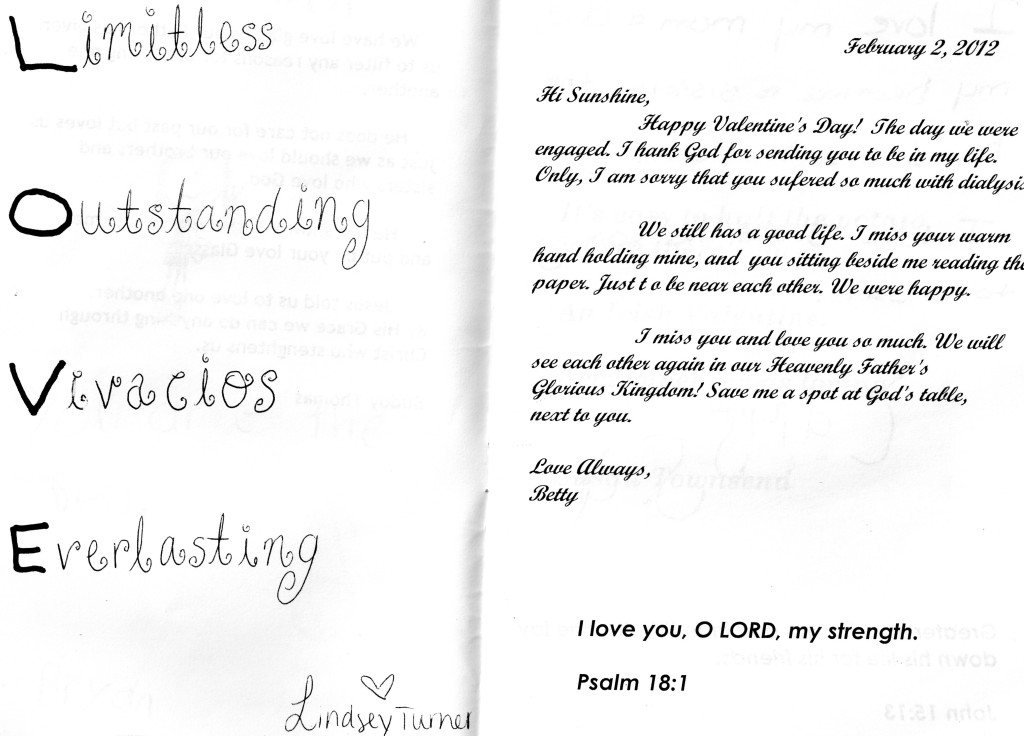 Limitless
Outstanding
Vivacios
Everlasting
Lindsey Turner
February 2, 2012
Hi Sunshine,
Happy Valentine's Day! The day we were
engaged. I hank God for sending you to be in my life.
Only, I am sorry that you sufered so much with dialysis
We still has a good life. I miss your warm
hand holding mine, and you sitting beside me reading the
paper. Just t o be near each other. We were happy.
I miss you and love you so much. We will
see each other again in our Heavenly Father's
Glorious Kingdom! Save me a spot at God's table,
next to you.
Love Always,
Betty
I love you, O LORD, my strength.
Psalm 18:1